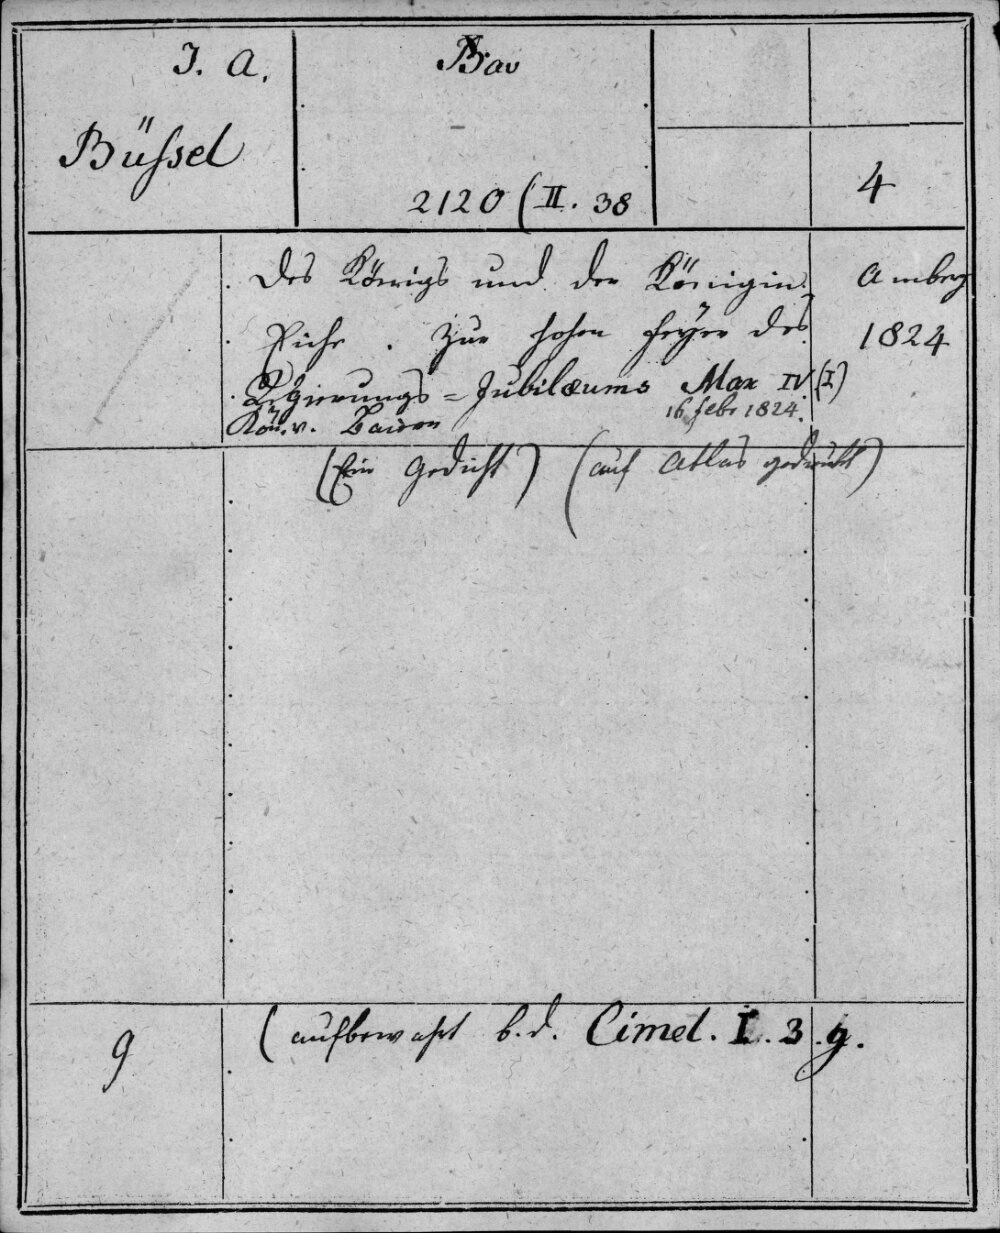 J. A.
Büssel
Bav
2120 (II. 38
4
Des Königs und der Königin
Eiche. Zur hohen Feyer des
Regierungs-Jubilæums Max IV. (I)
Kön. v. Baiern
16 febr 1824.
Amberg
1824
(Ein Gedicht) (auf Atlas gedruckt)
9
(aufbewahrt b. d. Cimel. I. 3. g.